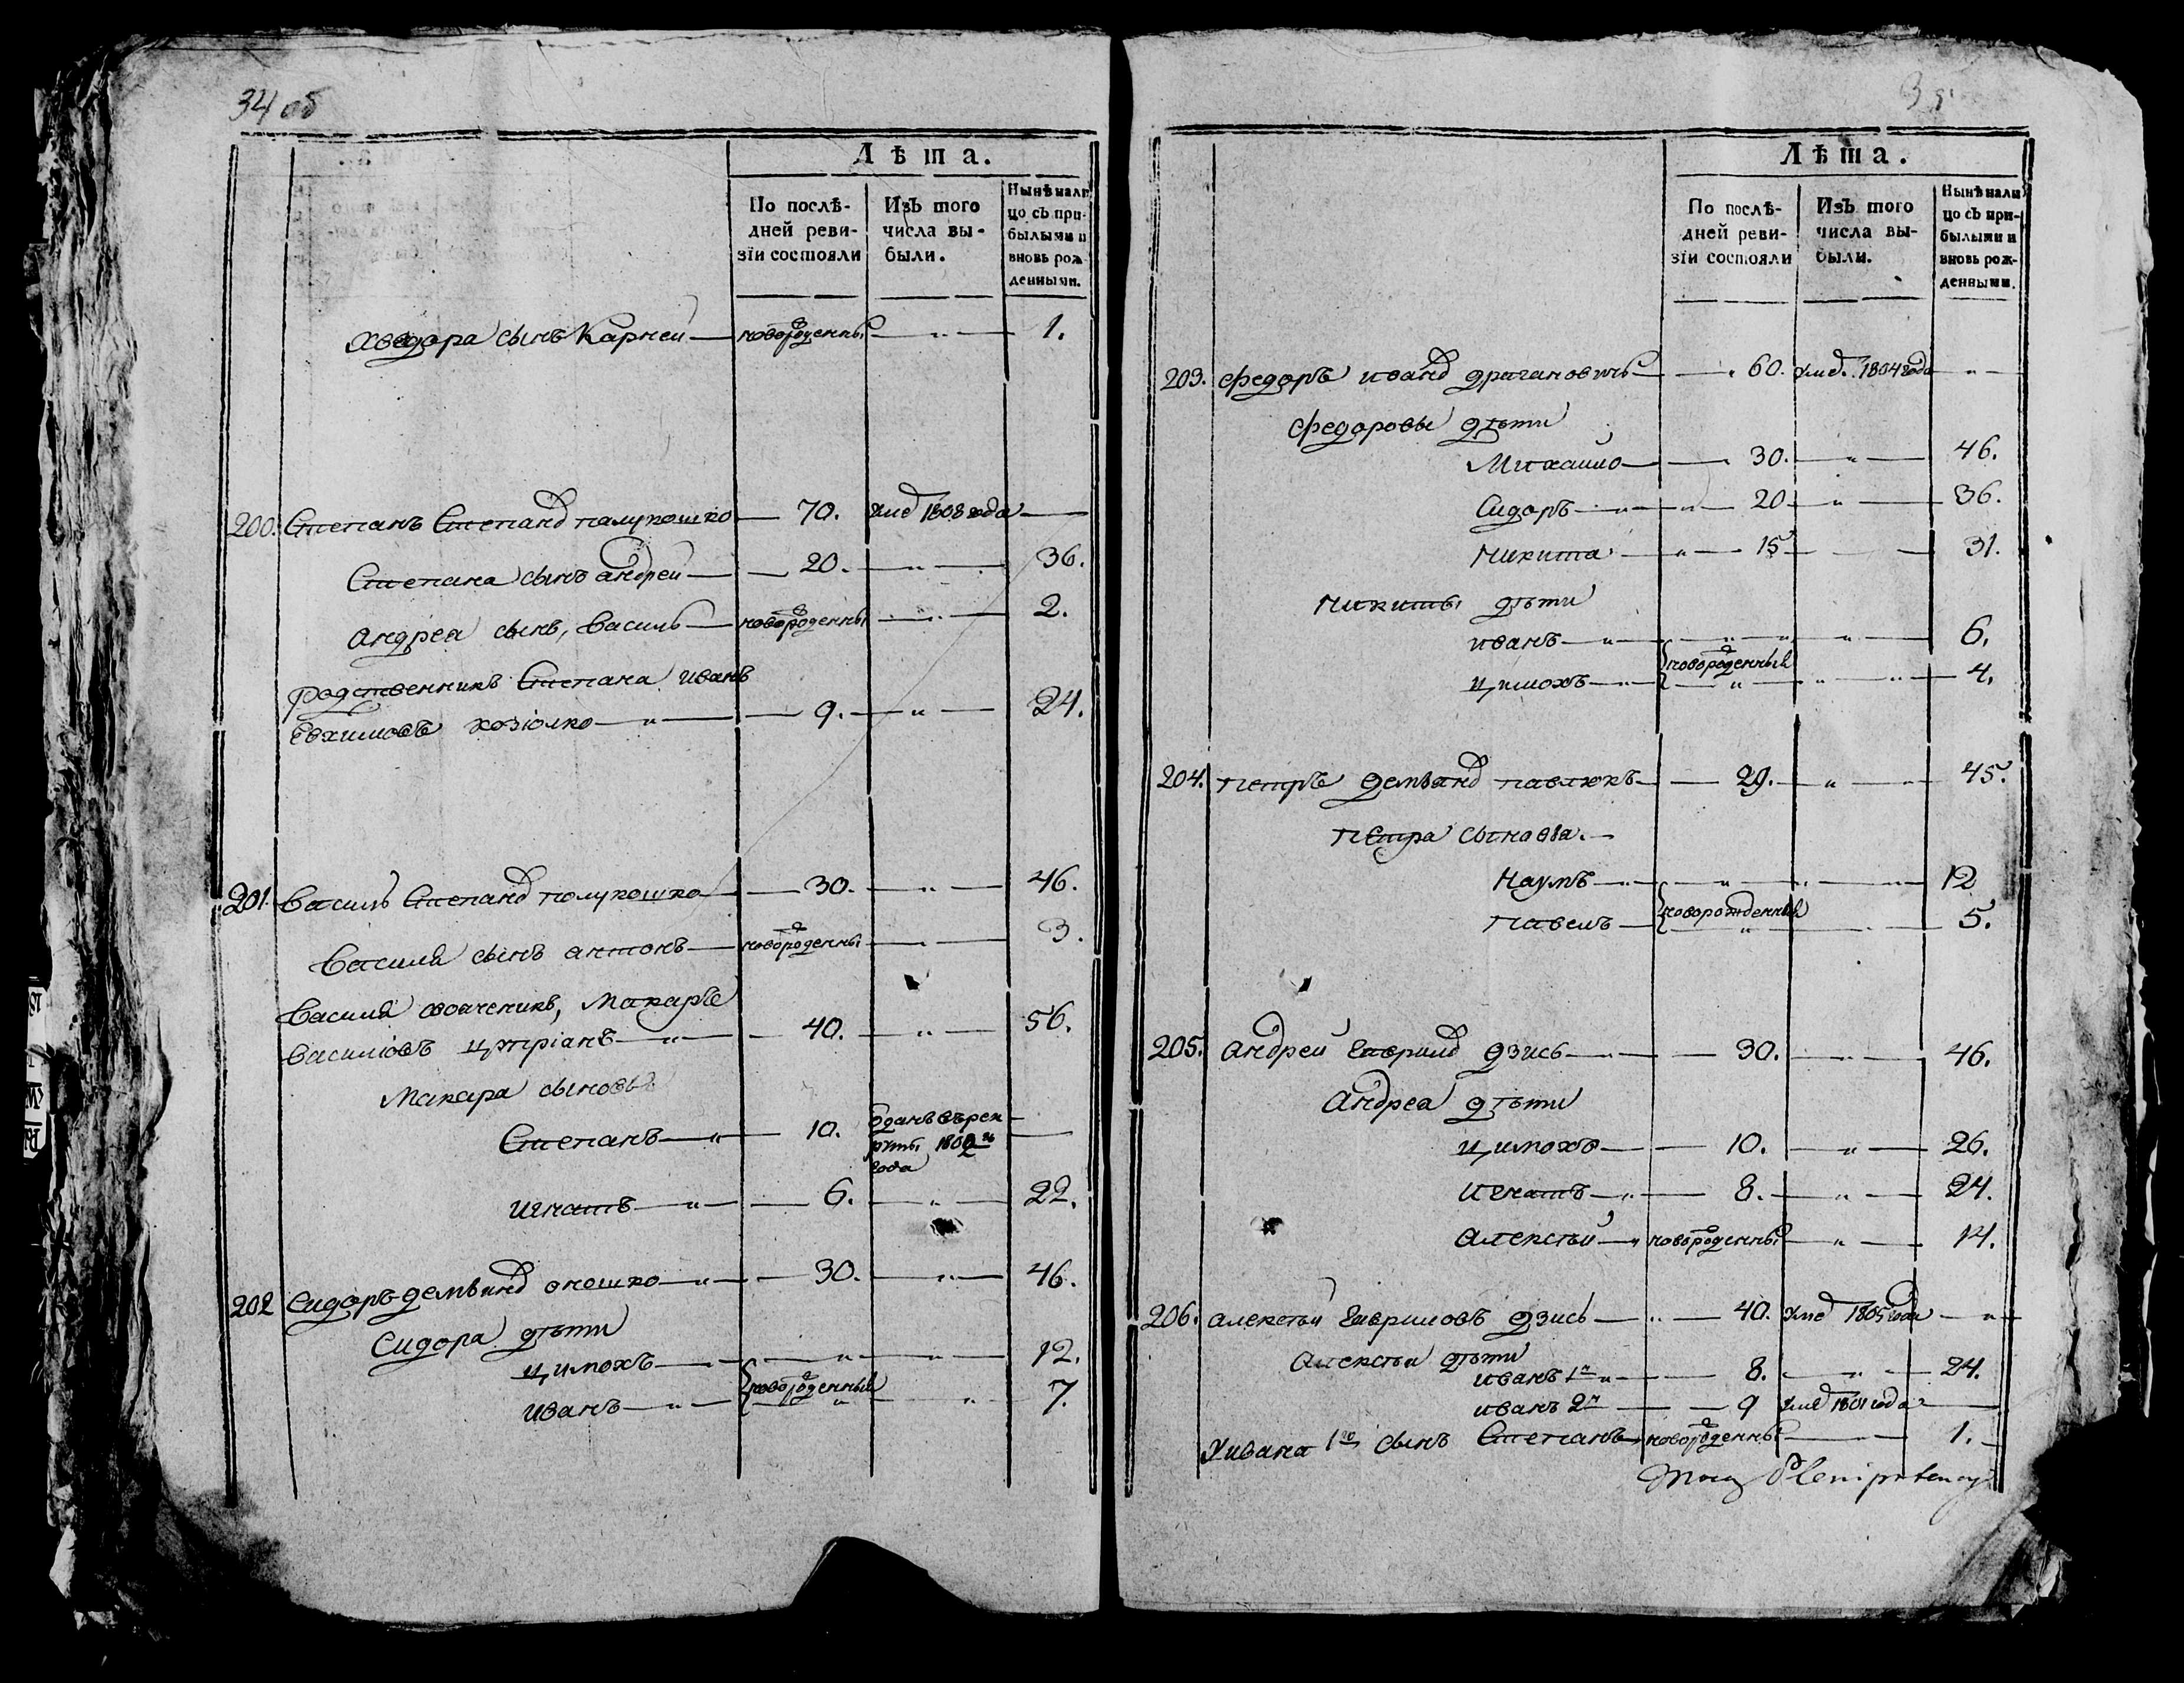 34 об
Лѣта.
По послѣ-
дней реви-
зіи состояли
Изъ того
числа вы-
были.
Нынѣ нали
цо съ при-
былыми и
вновь рож
денными.
Хведора сынъ Карней новороденны 1.
200. Степанъ Степанд палукошко 70. уме 1808 года
Степана сынъ андрей 20. 36.
андрея сынъ, василь новороденны 2.
родственникъ Степана иванъ
Евхимовъ козіолко 9. 24.
201. василь Степанд полукошко 30. 46.
василя сынъ антонъ новороденны 3.
василя своаченикъ, Макаръ
василіовъ 40. 56.
Макара сыновья
Степанъ 10. Оданъ въ рек
руты 1802 го
года
игнатъ 6. 22.
202 Сидоръ демьянд оношко 30. 46.
Сидора дѣти
цимохъ 12.
новороденныя
иванъ 7.
35
Лѣта.
По послѣ-
дней реви-
зіи состояли
Изъ того
числа вы-
были.
Нынѣ нали
цо съ при-
былыми и
вновь рож-
денными.
203. федоръ иванд драгановичъ 60. уме. 1804 года
федоровы дѣти
Михайло 30. 46.
Сидоръ 20 36.
никита 15 31.
никиты дѣти
иванъ 6.
новороденныя
цимохъ 4.
204. петръ демьянд павлюкъ 29. 45.
петра сыновья.
наумъ 12
новорожденныя
павелъ 5.
205. андрей гаврилд дзись 30. 46.
андрея дѣти
цимохъ 10. 26.
игнатъ 8. 24.
алексѣй новороденны 14.
206. алексѣй гавриловъ дзись 40. уме 1805 года
алексѣя дѣти
иванъ 1й 8. 24.
иванъ 2й 9 уме 1801 года
У ивана 1го сынъ Степанъ новороденны 1.
Plenipotencyi